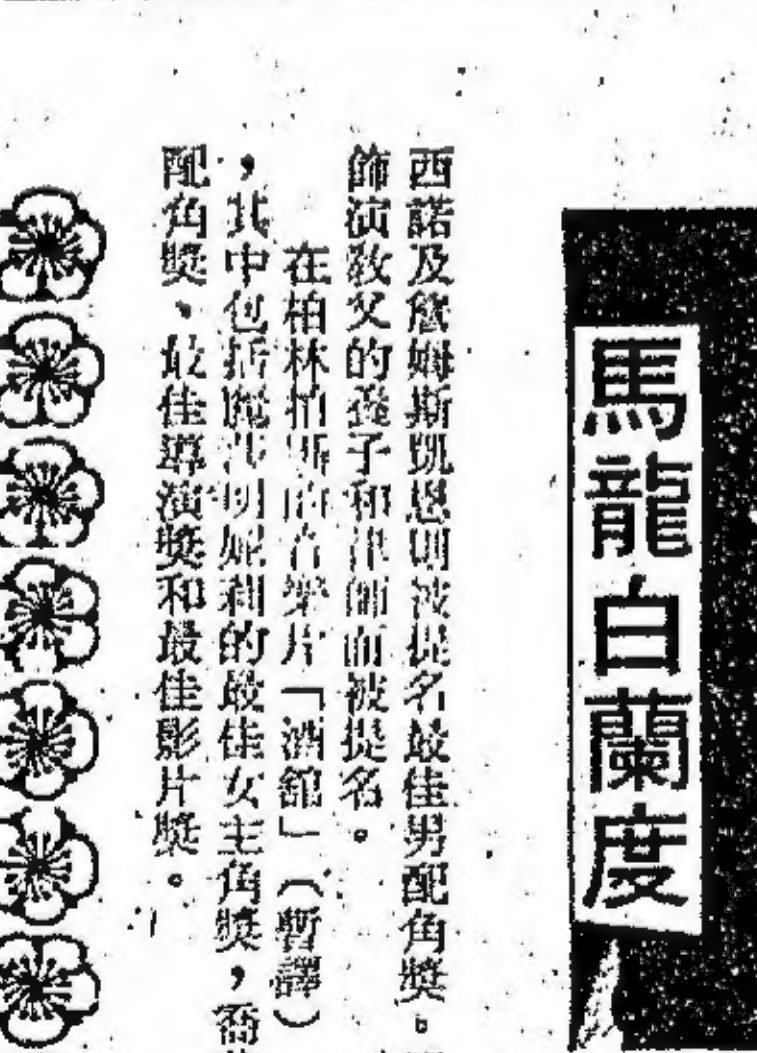 馬龍白蘭度
西諾及詹姆斯凱恩則被提名最佳男配角獎。
飾演教父的養子和律師而被提名。
在柏林拍的音樂片「酒館」(暫譯)
,其中包括明妮利的最佳女主角獎,喬
配角獎、最佳導演獎和最佳影片獎。